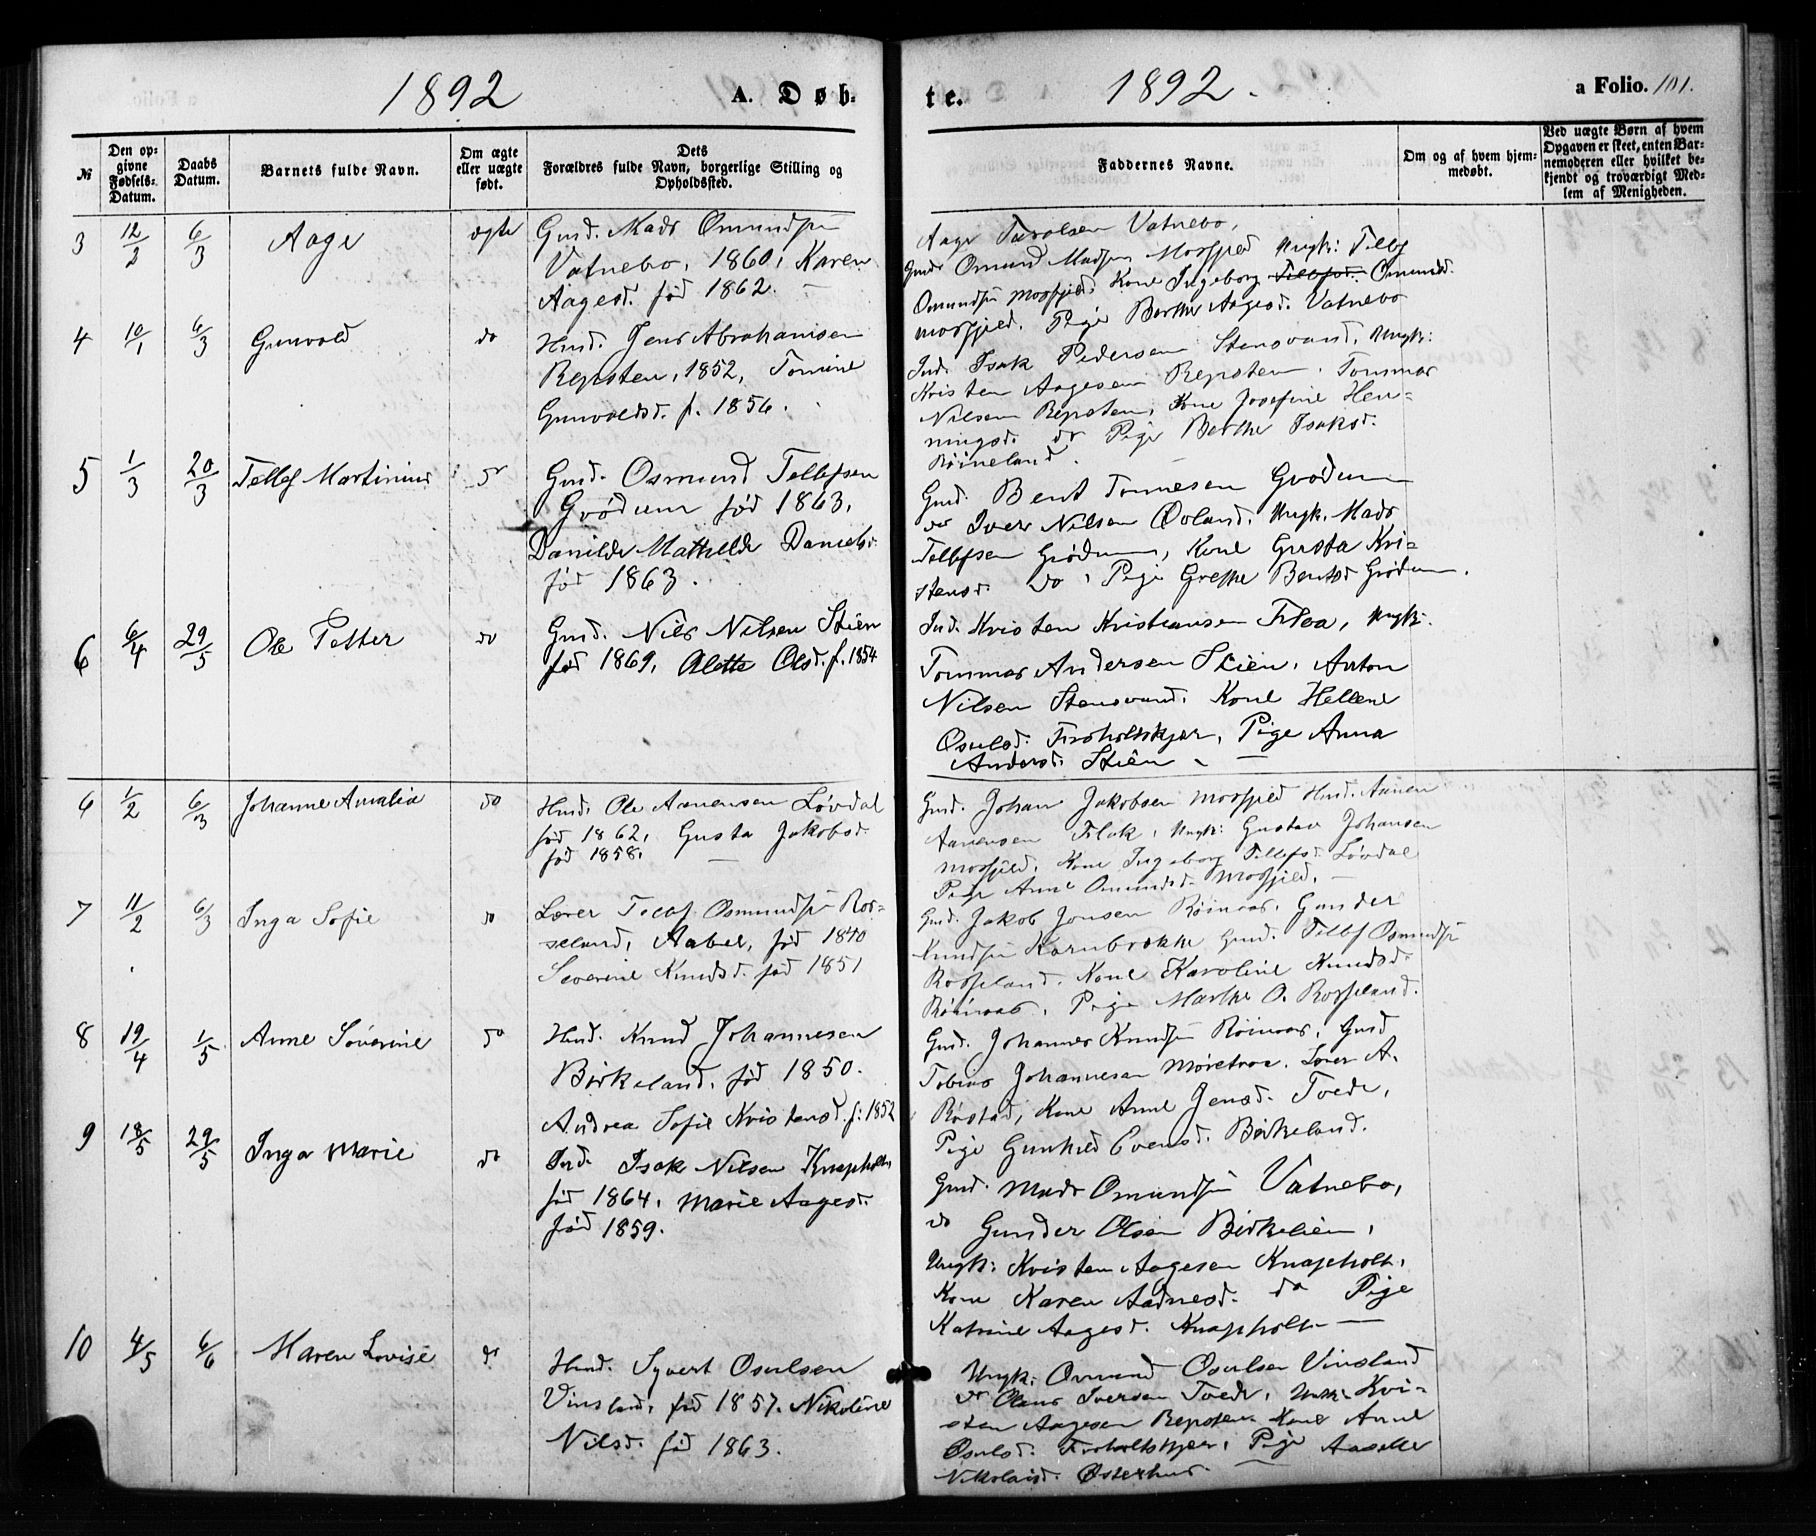 1892 A. Døb-
№ Den opgivne Fødsels-Datum. Daabs Datum. Barnets fulde Navn. Om ægte eller uægte født. Dets Forældres fulde Navn, borgerlige Stilling og Opholdssted.
3 12/2 6/3 Aage ægte Gmd. Mads Omundsen
Vatnebo, 1860, Karen
Aagesd. fød 1862. —
4 10/1 6/3 Gunvald do Hmd. Jens Abrahamsen
Repsten, 1852, Tomine
Gunvaldsd. f. 1856.
5 1/3 20/3 Tellef Martinius do Gmd. Osmund Tellefsen
Grødum fød 1863,
Danilde Mathilde Danielsd.
fød 1863.
6 6/4 29/5 Ole Petter do Gmd. Nils Nilsen Stien
fød 1869, Alette Olsd. f. 1854
6 1/2 6/3 Johanne Amalia do Hmd. Ole Aanensen Løvdal
fød 1862, Gusta Jakobsd.
fød 1858. —
7 11/2 6/3 Inga Sofie do Lærer Tellef Osmundsen Ros-
seland, Aabel, fød 1840
Severine Knudsd. fød 1851
8 19/4 1/5 Anne Søverine do Hmd. Knud Johannesen
Birkeland, fød 1850.
Andrea Sofie Kristensd. f. 1852
9 18/5 29/5 Inga Marie do Ind. Isak Nilsen Knapholt
fød 1864, Marie Aagesd.
fød 1859.
10 4/5 6/6 Maren Lovise do Hmd. Syvert Osulsen
Vinsland, fød 1857. Nikoline
Nilsd. fød 1863.
te. 1892. a Folio. 101.
Faddernes Navne. Om og af hvem hjemmedøbt. Ved uægte Børn af hvem Opgaven er skeet, enten Barnemoderen eller hvilket bekjendt og troværdigt Medlem af Menigheden.
Aage Taralsen Vatnebo,
Gmd. Omund Madsen Mosfjeld Ungk: Tellef
Omundsen Mosfjeld, Kone Ingeborg Tellefsd. Omundsd.
Mosfjeld. Pige Berthe Aagesd. Vatnebo
Ind. Isak Pedersen Stensvand, Ungk:
Kristen Aagesen Repsten. Tommas
Nilsen Repsten, Kone Josefine Hen-
ningsd. do Pige Berthe Isaksd.
Røineland.
Gmd. Bent Tønnesen Grødum
do Iver Nilsen Øoland. Ungk. Mads
Tellefsen Grødum, Kone Gusta Kri-
stensd. do, Pige Grethe Bentsd. Grødum.
Ind. Kristen Kristiansen Flaa, Ungk:
Tommas Andersen Stien, Anton
Nilsen Stensvand. Kone Hellene
Osulsd. Froholtskjær, Pige Anna
Andersd. Stien. —
Gmd. Johan Jakobsen Mosfjeld Hmd. Aanen
Aanensen Flak, Ungk: Gustav Johansen
Mosfjeld, Kone Ingeborg Tellefsd. Løvdal
Pige Anne Omundsd. Mosfjeld. —
Gmd. Jakob Jensen Røinaas, Gunder
Knudsen Kornbrekke Gmd. Tellef Osmundsen
Rosseland. Kone Karoline Knudsd.
Røinaas, Pige Marthe O. Rosseland.
Gmd. Johannes Knudsen Røinaas, Gmd
Tobias Johannesen Møretrøe. Lærer A.
Røstad, Kone Anne Jensd. Tvede,
Pige Gunhild Evensd. Birkeland.
Gmd. Mads Omundsen Vatnebo,
do Gunder Olsen Birkelien,
Ungk: Kristen Aagesen Knapholt,
Kone Karen Aadnesd. do Pige
Katrine Aagesd. Knapholt —
Ungk: Omund Osulsen Vinsland
do Olaus Iversen Tvede, Ungk: Kri-
sten Aagesen Repsten Kone Anne
Osulsd. Froholtskjær, Pige Aaselle
Nikolaisd. Østerhus. —